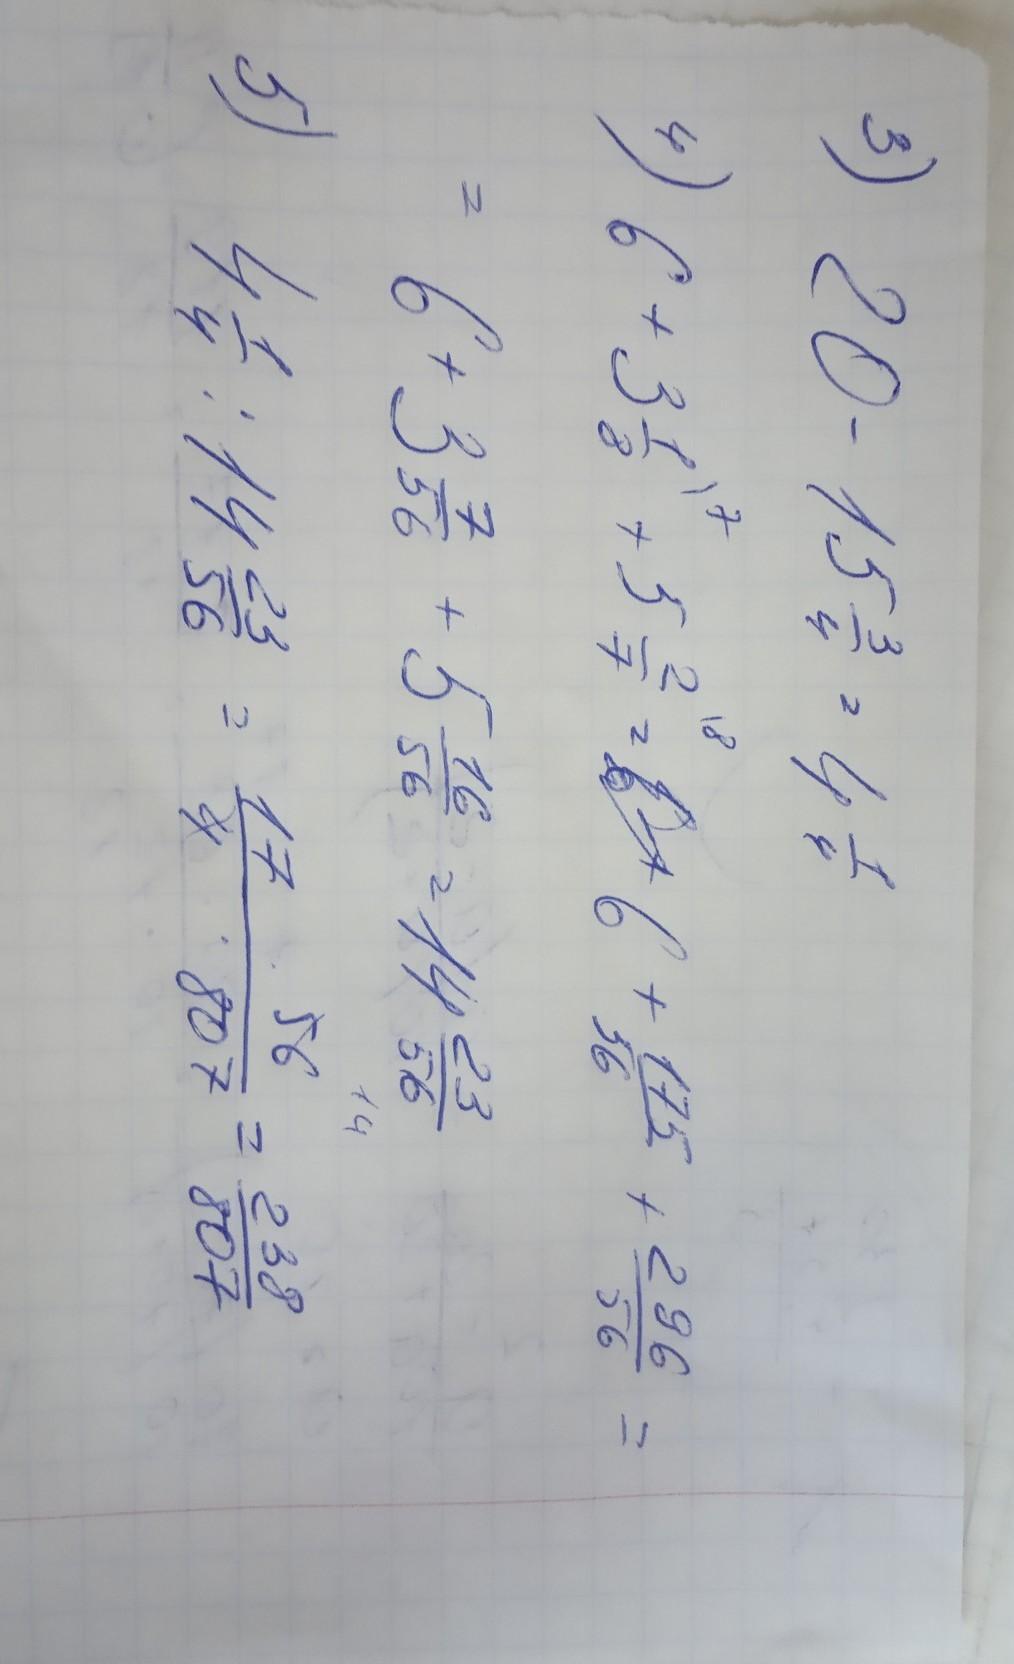 3) 20 - 15 3/4 = 4 1/4
4) 6 + 3 1/8 \7 + 5 2/7 \8 = 6 + 175/56 + 296/56 =
= 6 + 3 7/56 + 5 16/56 = 14 23/56
5) 4 1/4 : 14 23/56 = 17 · 56 14 / 4 · 807 = 238/807